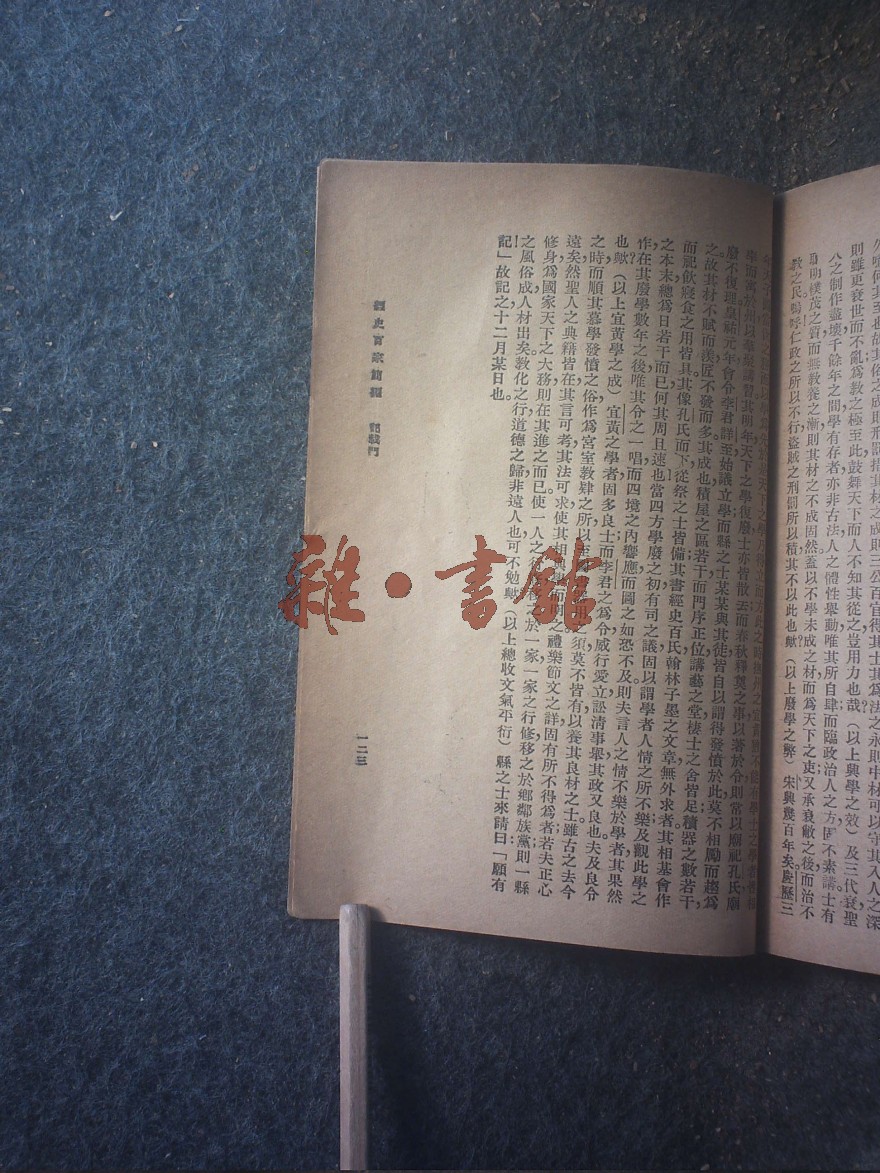 則雖更衰世而不亂爲敎之極至此鼓舞天下而人不知其從之豈用力也哉（以上興學之效）及三代衰聖
人之制作盡壞千餘年之間學有存者亦非古法人之體性舉動唯其所自肆而臨政治人之方固不素講士有
聰明樸茂之質而無敎養之漸則其材之不成固然蓋以不學未成之材而爲天下之吏又承衰敝之後而治不
敎之民嗚呼仁政之所以不行盜賊之刑罰所以積其不以此也歟（以上廢學之弊）宋興幾百年矣慶歷三
廢不復理皇祐元年會令李君詳至始議立學而縣之士某某與其徒皆自以謂得發憤於此莫不相勵而趨爲
之故其材不賦而羡匠不發而多其成也積屋之區若干而門序正位講藝之堂棲士之舍皆足積器之數若干
而祀飲寢食之用皆具其像孔氏而下從祭之士皆備其書經史百氏翰林子墨之文章無外求者其相基會作
之本末總爲日若干而已何其周且速也當四方學廢之初有司之議固以謂學者人情之所不樂及觀此學之
作在其廢學數年之後唯其令之一唱而四境之內響應而圖之如恐不及則夫言人之情不樂於學者其果然
也歟（以上宜黃學之成）宜黃之學者固多良士而李君之爲令威行愛立訟清事舉其政又良也夫及良令
之時而順其慕學發憤之俗作爲宮室敎肄之所以至圖書器用之須莫不皆有以養其良材之士雖古之去今
遠矣然聖人之典籍皆在其言可考其法可求使其相與學而明之禮樂節文之詳固有所不得爲者若夫正心
修身爲國家天下之大務則在其進之而已使一人之行修移之於一家一家之行修移之於鄉鄰族黨則一縣
之風俗成人材出矣敎化之行道德之歸非遠人也可不勉歟（以上總收文氣平衍）縣之士來請曰「願有
記」故記之十二月某日也。
經史百家簡編 記載門
一二三
雜·書館